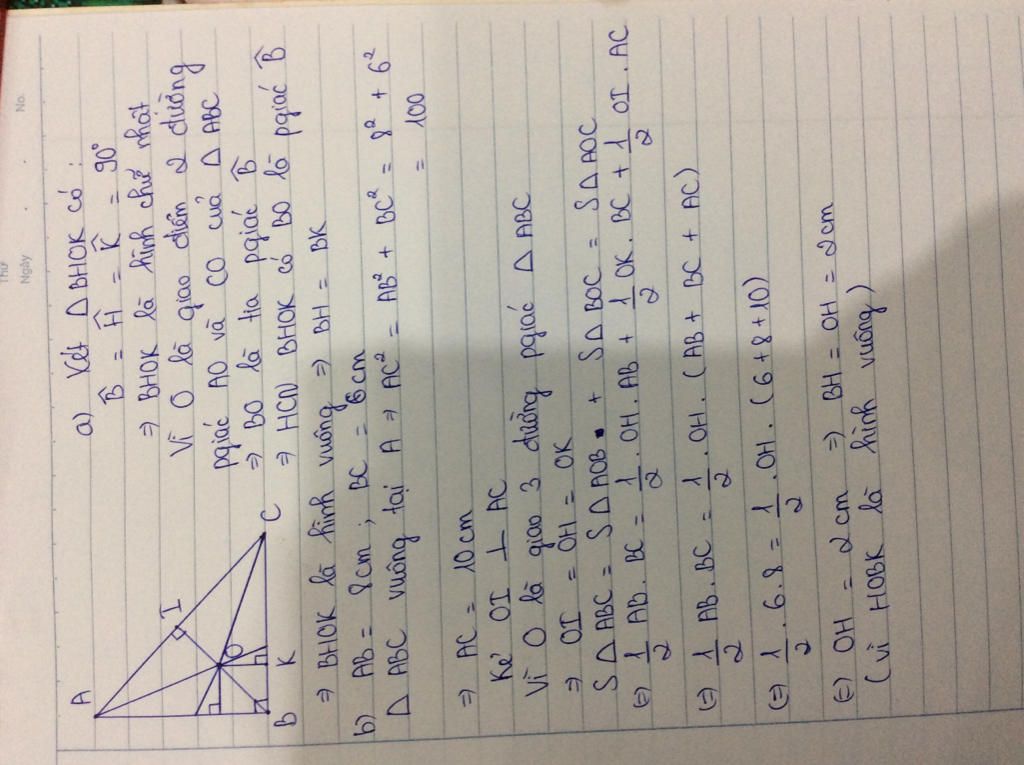 Thứ
Ngày
No.
A
I
O
B
K
C
a) Xét △BHOK có :
B̂ = Ĥ = K̂ = 90°
⇒ BHOK là hình chữ nhật
Vì O là giao điểm 2 đường
pgiác AO và CO của △ ABC
⇒ BO là tia pgiác B̂
⇒ HCN BHOK có BO là pgiác B̂
⇒ BHOK là hình vuông ⇒ BH = BK
b) AB = 8cm ; BC = 6cm
△ ABC vuông tại A ⇒ AC² = AB² + BC² = 8² + 6²
= 100
⇒ AC = 10cm
Kẻ OI ⊥ AC
Vì O là giao 3 đường pgiác △ ABC
⇒ OI = OH = OK
S△ ABC = S△ AOB + S△ BOC = S△ AOC
(=) 1/2 AB. BC = 1/2 .OH. AB + 1/2 OK. BC + 1/2 OI . AC
(=) 1/2 AB. BC = 1/2 .OH. (AB + BC + AC)
(=) 1/2 . 6. 8 = 1/2 .OH. (6+8+10)
(=) OH = 2cm ⇒ BH = OH = 2cm
(vì HOBK là hình vuông)